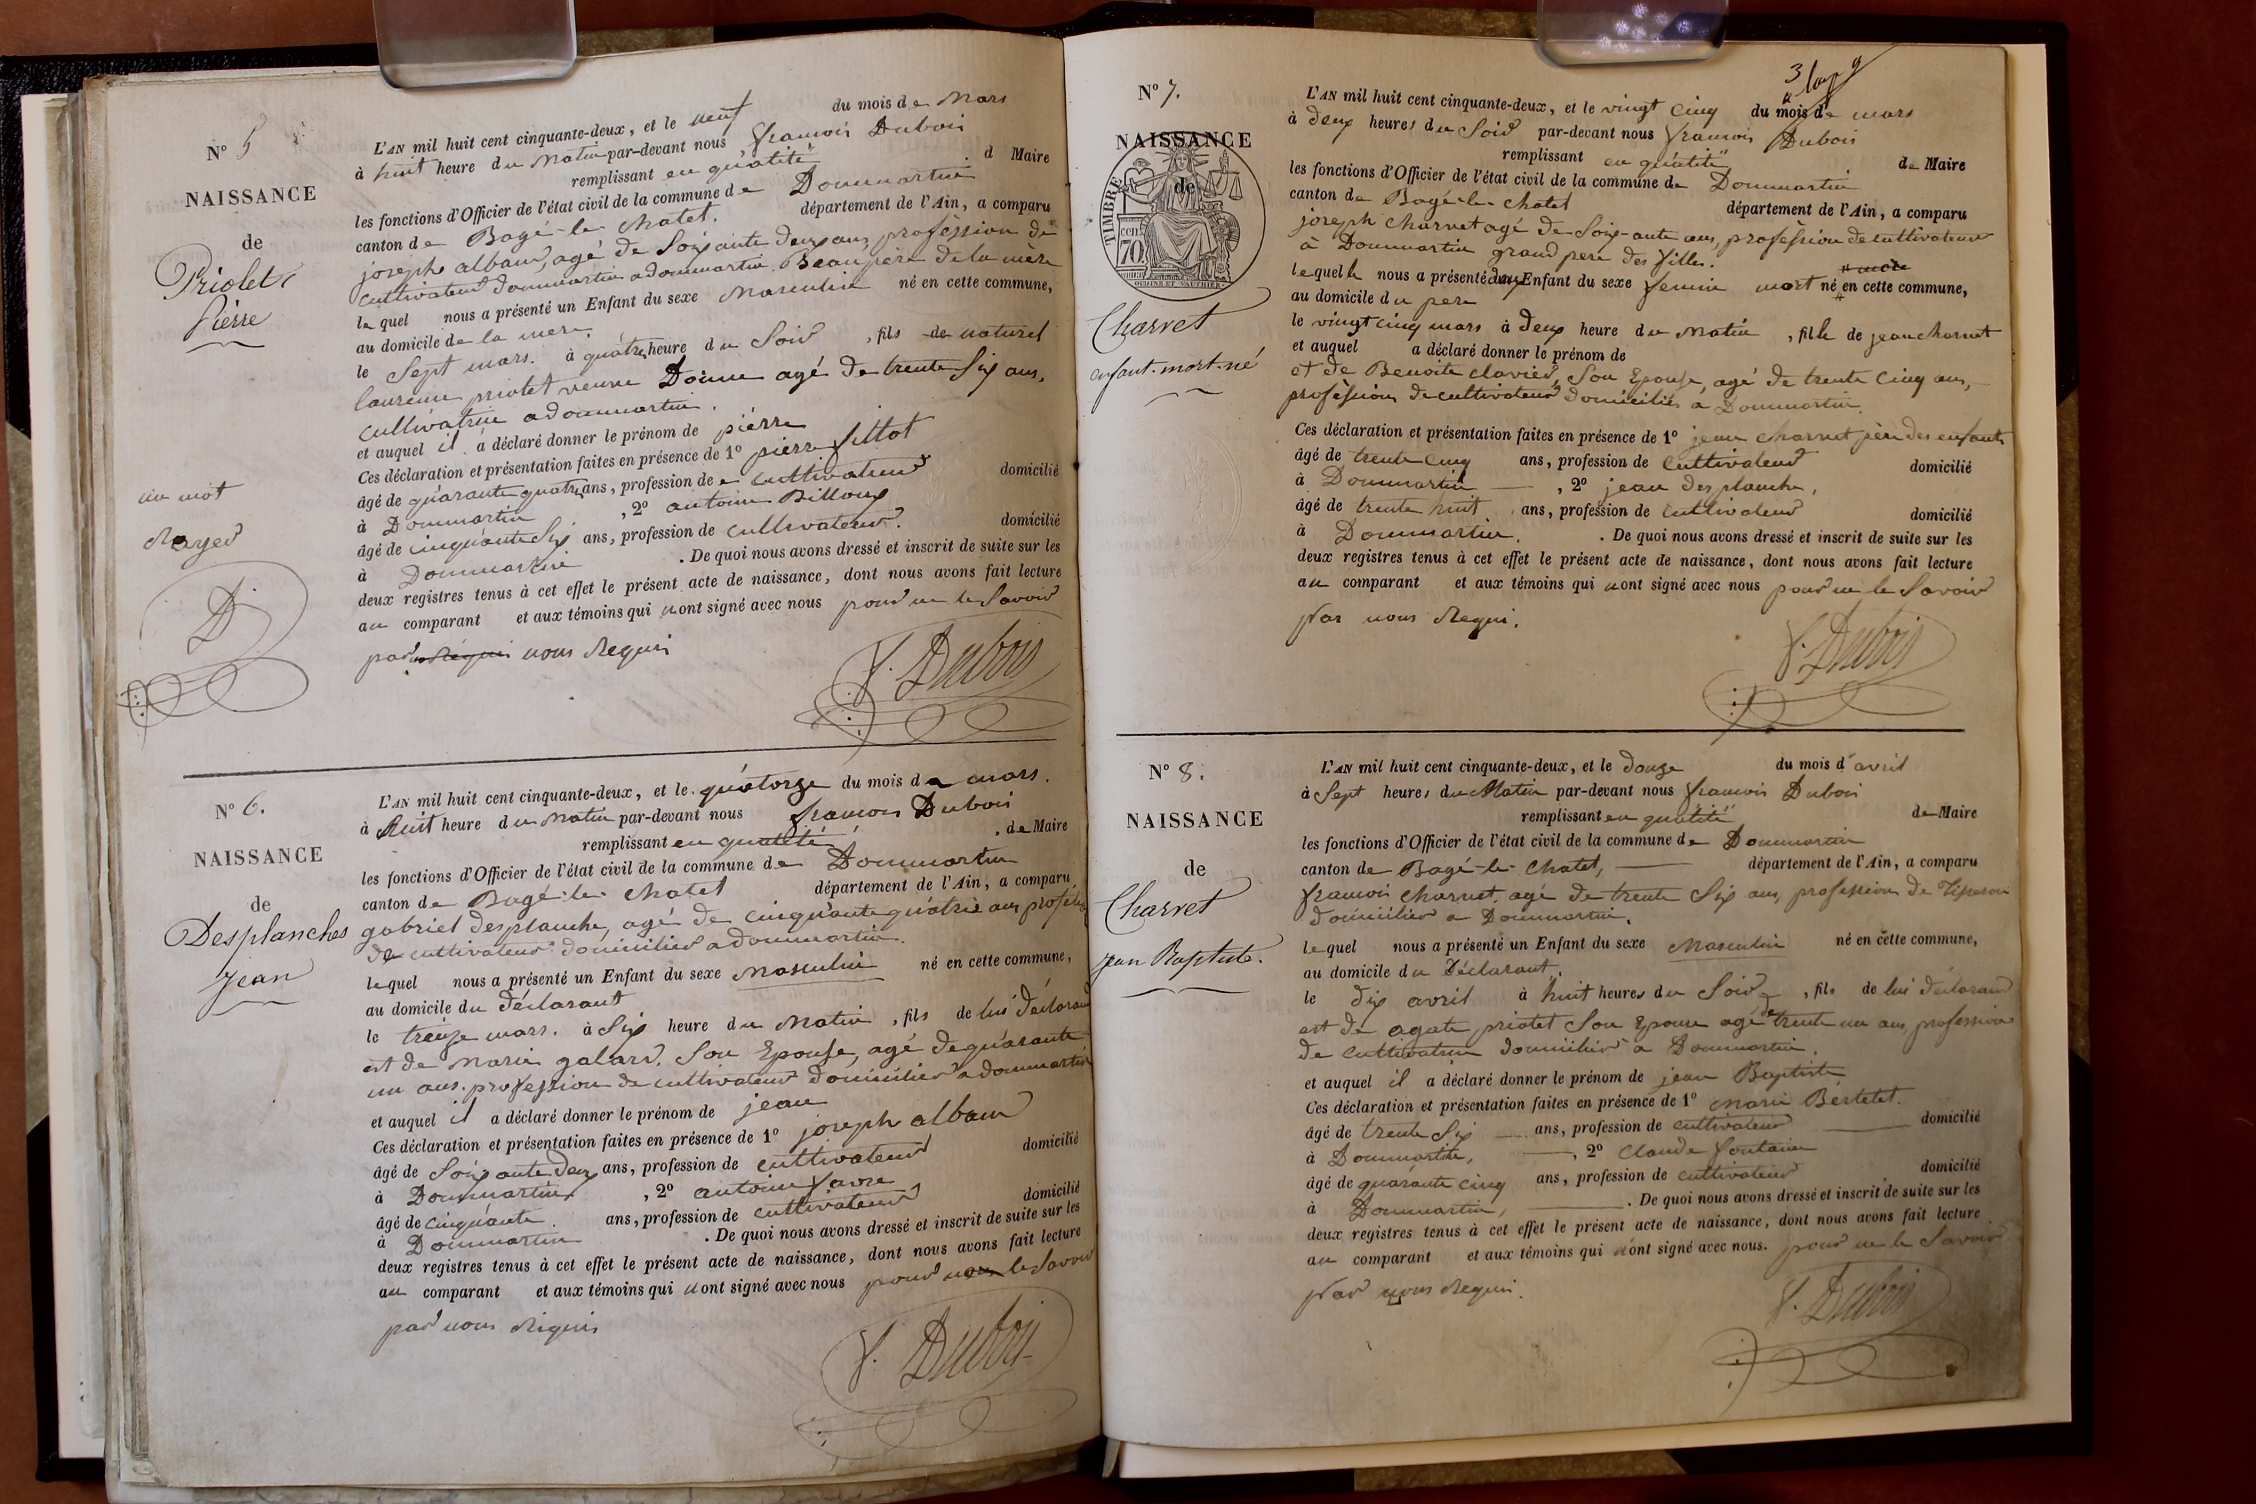 N° 5
NAISSANCE
de
Priolet
Pierre
un mot
Rayer
D
L'AN mil huit cent cinquante-deux, et le neuf du mois de Mars
à huit heure du Matin par-devant nous françois Dubois
remplissant en quátité d Maire
les fonctions d'Officier de l'état civil de la commune de Dommartin
canton de Bagé-le-Chatel. département de l'Ain, a comparu
joseph alband, agé de Soixante deux ans, profession de
cultivateur dommartin a dommartin. Beau père de la mère
lequel nous a présenté un Enfant du sexe Masculin né en cette commune,
au domicile de la mère.
le Sept mars. à quátre heure du Soir, fils de naturel
laurence priolet veuve Donne agé de trente Six ans,
cultivatrice a dommartin.
et auquel il a déclaré donner le prénom de pièrre
Ces déclaration et présentation faites en présence de 1° pièrre fillot
âgé de quárante quátre ans, profession de cultivateur domicilié
à Dommartin, 2° antoine Billoux
âgé de cinquánte Six ans, profession de cultivateur. domicilié
à Dommartin. De quoi nous avons dressé et inscrit de suite sur les
deux registres tenus à cet effet le présent acte de naissance, dont nous avons fait lecture
au comparant et aux témoins qui nont signé avec nous pour ne le Savoir
par Requi nous Requi
f. Dubois
N° 6.
NAISSANCE
de
Desplanches
Jean
L'AN mil huit cent cinquante-deux, et le quátorze du mois de mars.
à huit heure du Matin par-devant nous françois Dubois
remplissant en quátité, de Maire
les fonctions d'Officier de l'état civil de la commune de Dommartin
canton de Bagé-le-Chatel département de l'Ain, a comparu
gabriel desplanche, agé de cinquánte quátre ans, profession
de cultivateur domicilier a dommartin.
lequel nous a présenté un Enfant du sexe Masculin né en cette commune,
au domicile du déclarant
le treize mars. à Six heure du Matin, fils de lui déclarant
est de Marie galard. Son Epouse, agé de quárante
un ans. profession de cultivateur domicilier a dommartin
et auquel il a déclaré donner le prénom de jean
Ces déclaration et présentation faites en présence de 1° joseph alband
âgé de Soixante deux ans, profession de cultivateur domicilié
à Dommartin, 2° antoine favre
âgé de cinquánte. ans, profession de cultivateur domicilié
à Dommartin. De quoi nous avons dressé et inscrit de suite sur les
deux registres tenus à cet effet le présent acte de naissance, dont nous avons fait lecture
au comparant et aux témoins qui nont signé avec nous pour ne le Savoir
par nous Riquis
f. Dubois
N° 7.
NAISSANCE
de
TIMBRE
70 cen
Charvet
enfant-mort-né
L'AN mil huit cent cinquante-deux, et le vingt cinq du mois de mars
à deux heures du Soir par-devant nous françois Dubois
remplissant en quátité de Maire
les fonctions d'Officier de l'état civil de la commune de Dommartin
canton de Bagé-le-Chatel département de l'Ain, a comparu
joseph Charvet agé de Soix-ante ans, profession de cultivateur
à Dommartin grand pere des filles.
lequel nous a présenté deux Enfant du sexe femin mort né en cette commune,
au domicile du pere
le vingt cinq mars à deux heure du Matin, fille de jean charvet
et auquel a déclaré donner le prénom de
et de Benoite clavier, Son Epouse, agé de trente cinq ans,
profession de cultivateur domiciliés à Dommartin.
Ces déclaration et présentation faites en présence de 1° jean charvet père des enfants
âgé de trente cinq ans, profession de cultivateur domicilié
à Dommartin, 2° jean desplanche,
âgé de trente huit ans, profession de cultivateur domicilié
à Dommartin. De quoi nous avons dressé et inscrit de suite sur les
deux registres tenus à cet effet le présent acte de naissance, dont nous avons fait lecture
au comparant et aux témoins qui nont signé avec nous pour ne le Savoir
par nous Requi.
f. Dubois
N° 8.
NAISSANCE
de
Charvet
Jean Baptiste.
L'AN mil huit cent cinquante-deux, et le douze du mois d'avril
à Sept heures du Matin par-devant nous françois Dubois
remplissant en quátité de Maire
les fonctions d'Officier de l'état civil de la commune de Dommartin
canton de Bagé-le-Chatel, département de l'Ain, a comparu
françois charvet, agé de trente Six ans, profession de Tisseran
domicilier a Dommartin.
lequel nous a présenté un Enfant du sexe Masculin né en cette commune,
au domicile du Déclarant.
le dix avril à huit heures du Soir, fils de lui déclarant
est de agate priolet Son Epouse agé de trente un ans, profession
de cultivatrice domicilier a Dommartin.
et auquel il a déclaré donner le prénom de jean Baptiste
Ces déclaration et présentation faites en présence de 1° Marie Bertetet.
âgé de trente Six ans, profession de cultivateur domicilié
à Dommartin, 2° Claude fontaine
âgé de quárante cinq ans, profession de cultivateur domicilié
à Dommartin, . De quoi nous avons dressé et inscrit de suite sur les
deux registres tenus à cet effet le présent acte de naissance, dont nous avons fait lecture
au comparant et aux témoins qui nont signé avec nous. pour ne le Savoir
par nous Requi.
f. Dubois